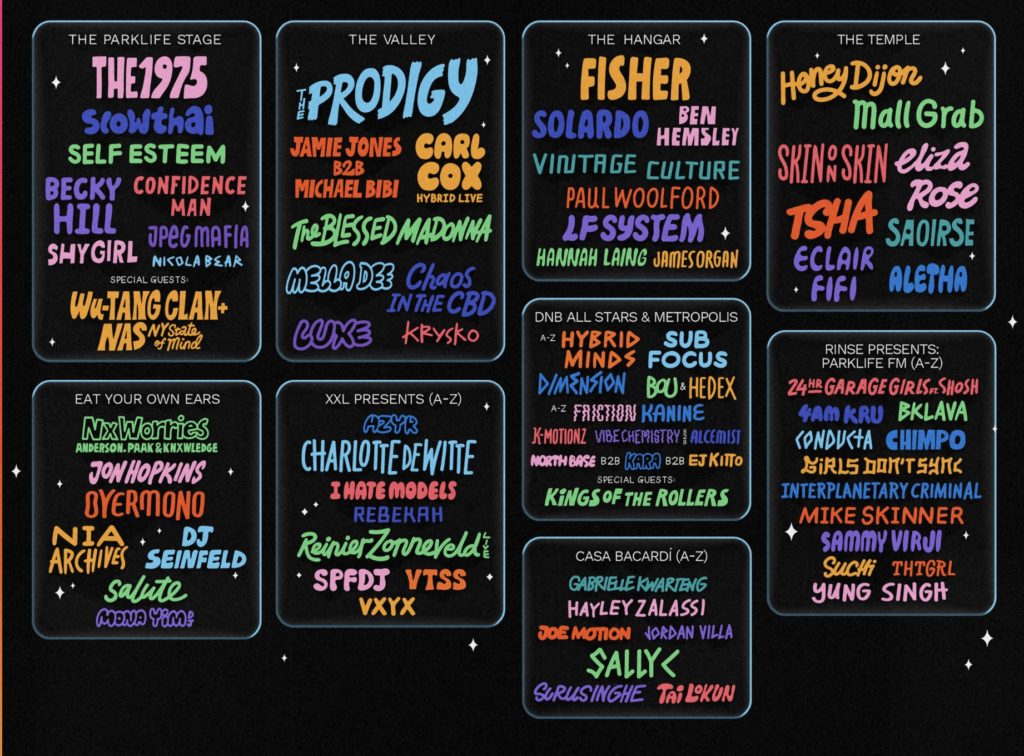 THE PARKLIFE STAGE
THE 1975
Slowthai
SELF ESTEEM
BECKY HILL
CONFIDENCE MAN
SHYGIRL
JPEGMAFIA
NICOLA BEAR
SPECIAL GUESTS:
WU-TANG CLAN +
NAS NY State of Mind
THE VALLEY
THE PRODIGY
JAMIE JONES
B2B
MICHAEL BIBI
CARL COX
HYBRID LIVE
The BLESSED MADONNA
MELLA DEE
Chaos IN THE CBD
LUXE
KRYSKO
THE HANGAR
FISHER
SOLARDO
BEN HEMSLEY
VINTAGE CULTURE
PAUL WOOLFORD
LF SYSTEM
HANNAH LAING
JAMES ORGAN
THE TEMPLE
Honey Dijon
Mall Grab
SKIN ON SKIN
eliza Rose
TSHA
SAOIRSE
ECLAIR FIFI
ALETHA
EAT YOUR OWN EARS
NxWorries
ANDERSON .PAAK & KNXWLEDGE
JON HOPKINS
OVERMONO
NIA ARCHIVES
DJ SEINFELD
Salute
MONA YIM!
XXL PRESENTS (A-Z)
AZYR
CHARLOTTE DE WITTE
I HATE MODELS
REBEKAH
Reinier Zonneveld LIVE
SPFDJ
VTSS
VXYX
DNB ALL STARS & METROPOLIS
A-Z HYBRID MINDS
SUB FOCUS
DIMENSION
BOU & HEDEX
A-Z FRICTION KANINE
K-MOTIONZ VIBE CHEMISTRY ALCEMIST
NORTH BASE B2B KARA B2B EJ KITTO
SPECIAL GUESTS:
KINGS OF THE ROLLERS
CASA BACARDÍ (A-Z)
GABRIELLE KWARTENG
HAYLEY ZALASSI
JOE MOTION JORDAN VILLA
SALLY C
SURUSINGHE TAI LOKUN
RINSE PRESENTS:
PARKLIFE FM (A-Z)
24HR GARAGE GIRLS FT. SHOSH
4AM KRU BKLAVA
CONDUCTA CHIMPO
GIRLS DON'T SYNC
INTERPLANETARY CRIMINAL
MIKE SKINNER
SAMMY VIRJI
SUCHI THTGRL
YUNG SINGH